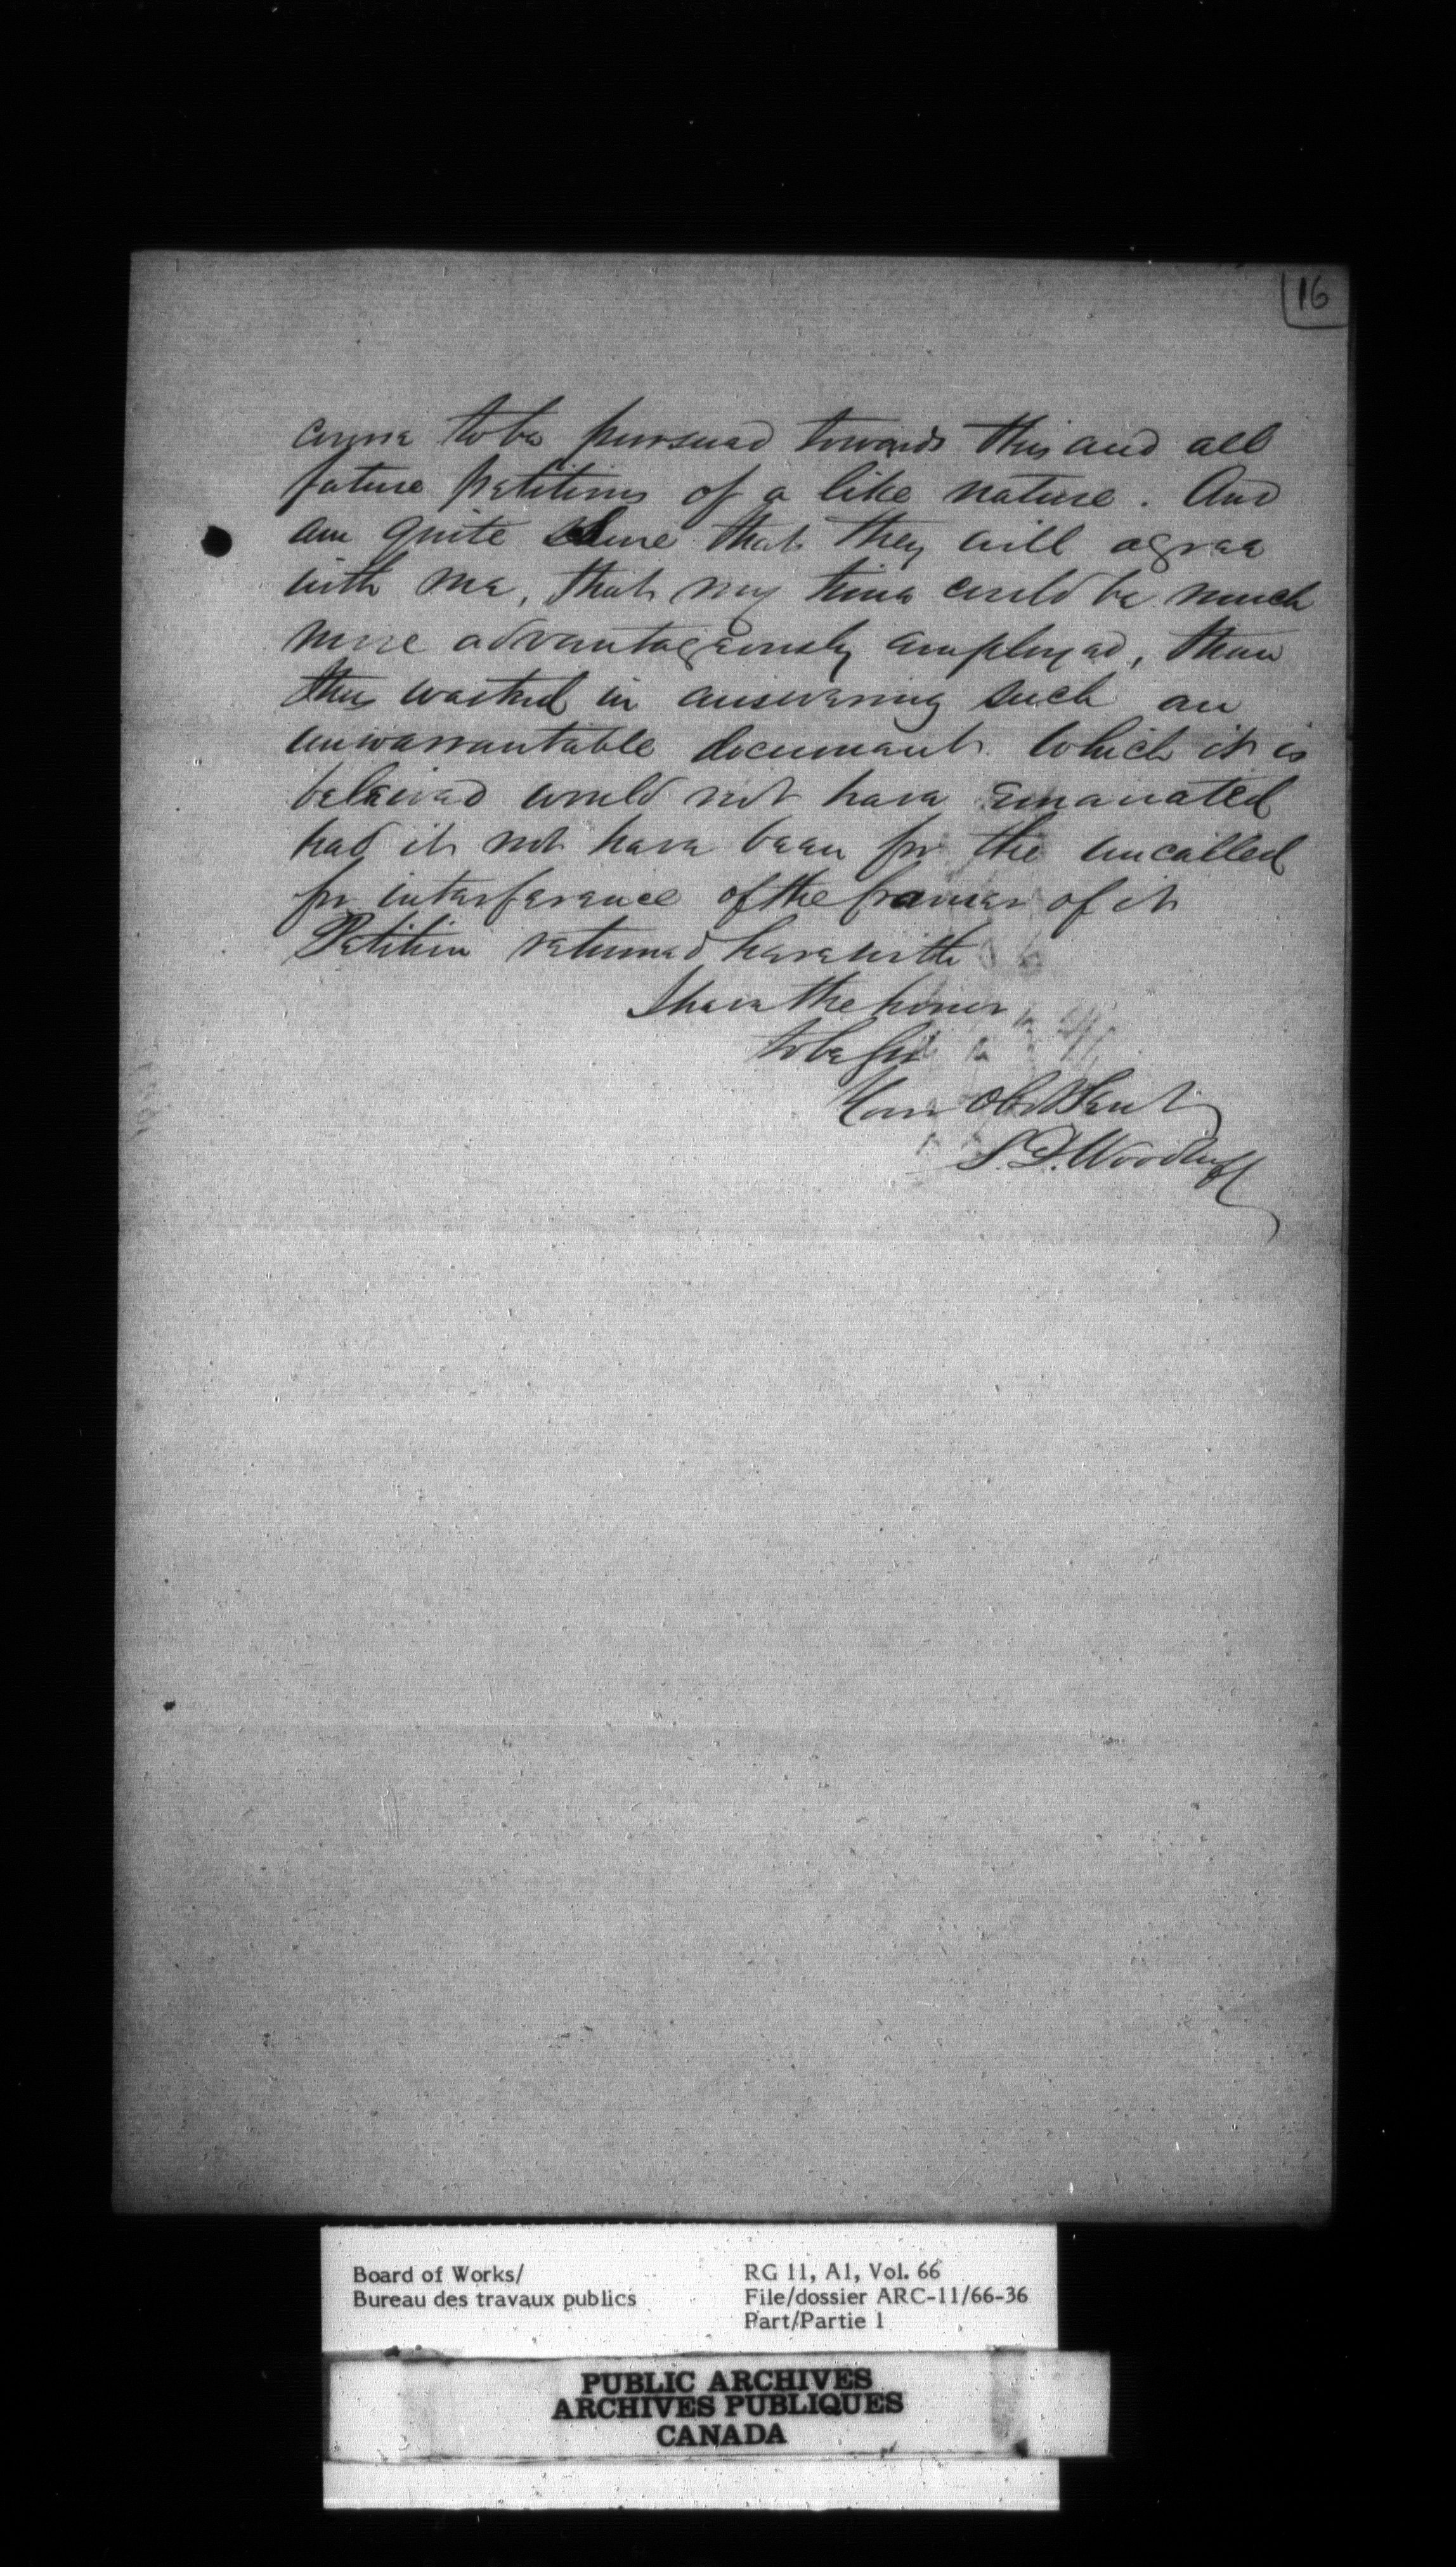 16
course to be pursued towards this and all
future petitions of a like nature. And
am quite sure that they will agree
with me, that my time could be much
more advantageously employed, than
thus wasted in answering such an
unwarrantable document. Which it is
beleived would not have emanated
had it not have been for the uncalled
for interference of the framer of it
Petition returned herewith
I have the honor
to be Sir
Your Obt Servt
S. D. Woodruff
Board of Works/
Bureau des travaux publics
RG 11, A1, Vol. 66
File/dossier ARC-11/66-36
Part/Partie 1
PUBLIC ARCHIVES
ARCHIVES PUBLIQUES
CANADA